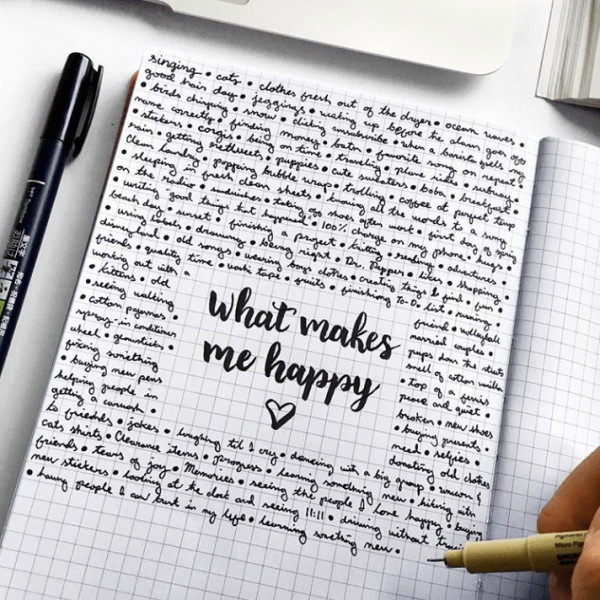 singing • cats • clothes fresh out of the dryer • ocean waves •
good hair day • jeggings • waking up before the alarm goes off
• birds chirping • snow • clicking unsubscribe • when a barista spells my
name correctly • finding money • baths • favorite song on repeat
• stickers • corgis • being on time • traveling • plane rides • subway •
rain • getting retweets • puppies • cute sweaters • boba • breakfast •
clean laundry • popping bubble wrap • trolling • coffee at perfect temp
• sleeping in fresh clean sheets • knowing all the words to a song
on the radio • sundresses • taking off shoes after work • first day of spring
writing good things that happened • 100% charge on my phone • hugs •
beach day • sunset • finishing a project • knitting • reading • adventures •
• using labels • drawing • being right • Dr. Pepper • likes • shopping •
disneyland • old songs • wearing boys clothes • creating things • find • fun •
friends • quality time • washi tape • quotes • finishing To-Do list • running •
working out with a
friend • volleyball
• kittens • old
married couples •
• seeing walking
pups down the street
• cotton pajamas •
smell of cotton candle
spray-in conditioner
• top of a ferris
wheel • acoustics •
peace and quiet •
fixing something
broken • new shoes
• buying new pens
• buying presents •
helping people in
need • selfies •
getting a carwash •
donating old clothes
what makes
me happy
to friends • jokes • laughing til I cry • dancing with a big group •
cats shirts • Clearance items • progress • learning something new • hiking with
friends • tears of joy • Memories • seeing the people I love happy • buying
new stickers • looking at the clock and seeing 11:11 • driving without
• having people I can trust in my life • learning something new •